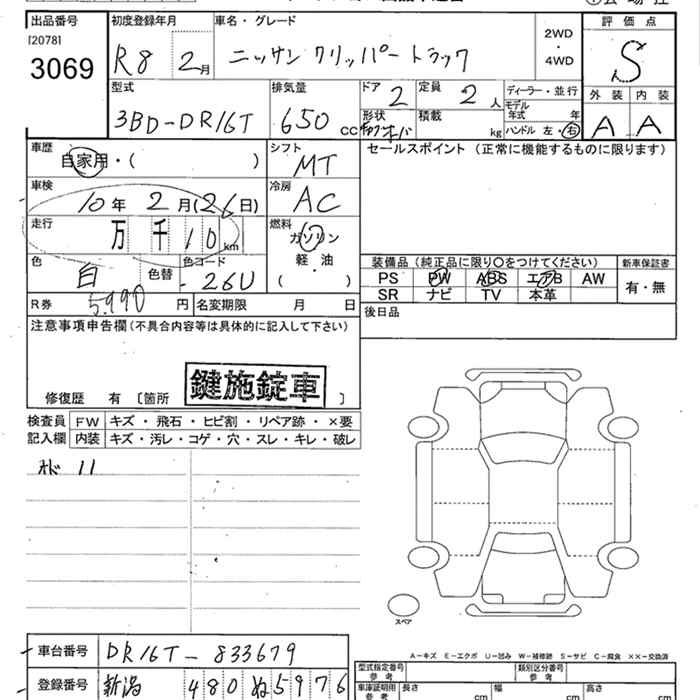 出品番号 初度登録年月 車名・グレード 評価点
[2078] 3069 R8 2月 ニッサン クリッパートラック 2WD・4WD S
型式 排気量 ドア 定員 ディーラー・並行 外装 内装
3BD-DR16T 650 CC 2 2人 モデル年式 年 A A
形状 積載 kg ハンドル 左・右
車歴 自家用・( ) シフト MT セールスポイント (正常に機能するものに限ります)
車検 10年2月(26日) 冷房 AC
走行 万 千 10 km 燃料 ガソリン 軽・油 ( )
色 白 色替 色コード 26U
装備品 (純正品に限り○をつけてください) 新車保証書
PS PW ABS エアB AW 有・無
SR ナビ TV 本革
R券 5,990円 名変期限 月 日 後日品
注意事項申告欄 (不具合内容等は具体的に記入して下さい)
鍵施錠車
修復歴 有 [箇所 ]
検査員記入欄 FW キズ・飛石・ヒビ割・リペア跡・×要
内装 キズ・汚レ・コゲ・穴・スレ・キレ・破レ
11
スペア
A-キズ E-エクボ U-凹み W-補修跡 S-サビ C-腐食 XX-交換済
車台番号 DR16T-833679
型式指定番号 参考 類別区分番号 参考
登録番号 新潟 480 ぬ5976
車庫証明用 参考 長さ cm 幅 cm 高さ cm